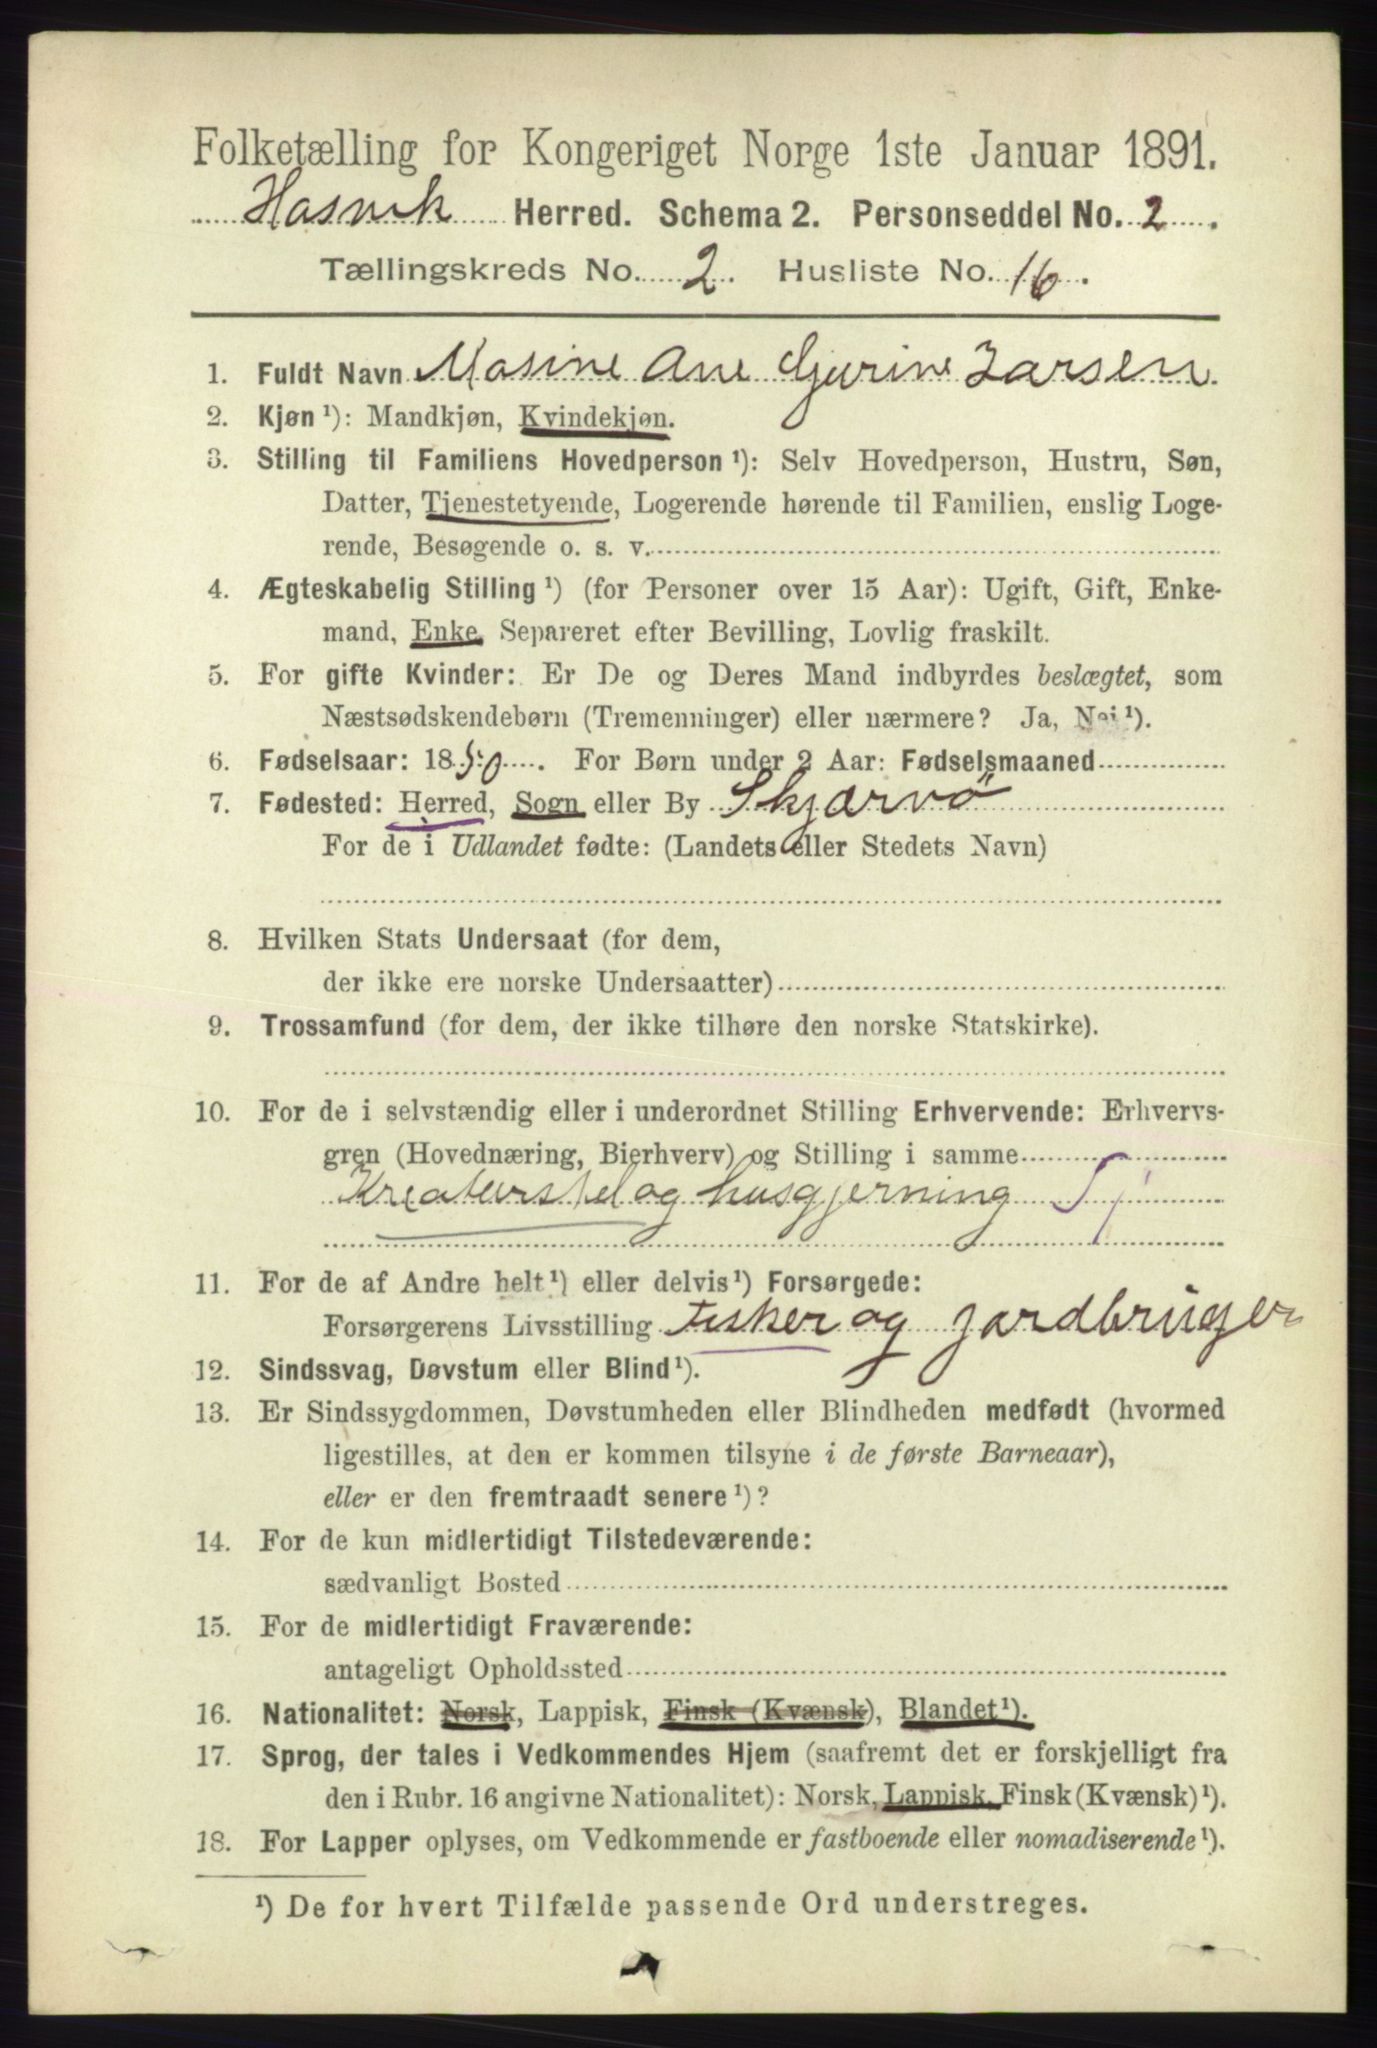 Folketælling for Kongeriget Norge 1ste Januar 1891.
Hasvik Herred. Schema 2. Personseddel No. 2.
Tællingskreds No. 2. Husliste No. 16.
1. Fuldt Navn Masine Ane Gjurine Larsen.
2. Kjøn ¹): Mandkjøn, Kvindekjøn.
3. Stilling til Familiens Hovedperson ¹): Selv Hovedperson, Hustru, Søn,
Datter, Tjenestetyende, Logerende hørende til Familien, enslig Loge-
rende, Besøgende o. s. v.
4. Ægteskabelig Stilling ¹) (for Personer over 15 Aar): Ugift, Gift, Enke-
mand, Enke, Separeret efter Bevilling, Lovlig fraskilt.
5. For gifte Kvinder: Er De og Deres Mand indbyrdes beslægtet, som
Næstsødskendebørn (Tremenninger) eller nærmere? Ja, Nei ¹).
6. Fødselsaar: 1850. For Børn under 2 Aar: Fødselsmaaned
7. Fødested: Herred, Sogn eller By Skjærvö
For de i Udlandet fødte: (Landets eller Stedets Navn)
8. Hvilken Stats Undersaat (for dem,
der ikke ere norske Undersaatter)
9. Trossamfund (for dem, der ikke tilhøre den norske Statskirke).
10. For de i selvstændig eller i underordnet Stilling Erhvervende: Erhvervs-
gren (Hovednæring, Bierhverv) og Stilling i samme
Kreaturstel og husgjerning
11. For de af Andre helt ¹) eller delvis ¹) Forsørgede:
Forsørgerens Livsstilling Fisker og jordbruger
12. Sindssvag, Døvstum eller Blind ¹).
13. Er Sindssygdommen, Døvstumheden eller Blindheden medfødt (hvormed
ligestilles, at den er kommen tilsyne i de første Barneaar),
eller er den fremtraadt senere ¹)?
14. For de kun midlertidigt Tilstedeværende:
sædvanligt Bosted
15. For de midlertidigt Fraværende:
antageligt Opholdssted
16. Nationalitet: Norsk, Lappisk, Finsk (Kvænsk), Blandet ¹).
17. Sprog, der tales i Vedkommendes Hjem (saafremt det er forskjelligt fra
den i Rubr. 16 angivne Nationalitet): Norsk, Lappisk, Finsk (Kvænsk) ¹).
18. For Lapper oplyses, om Vedkommende er fastboende eller nomadiserende ¹).
¹) De for hvert Tilfælde passende Ord understreges.